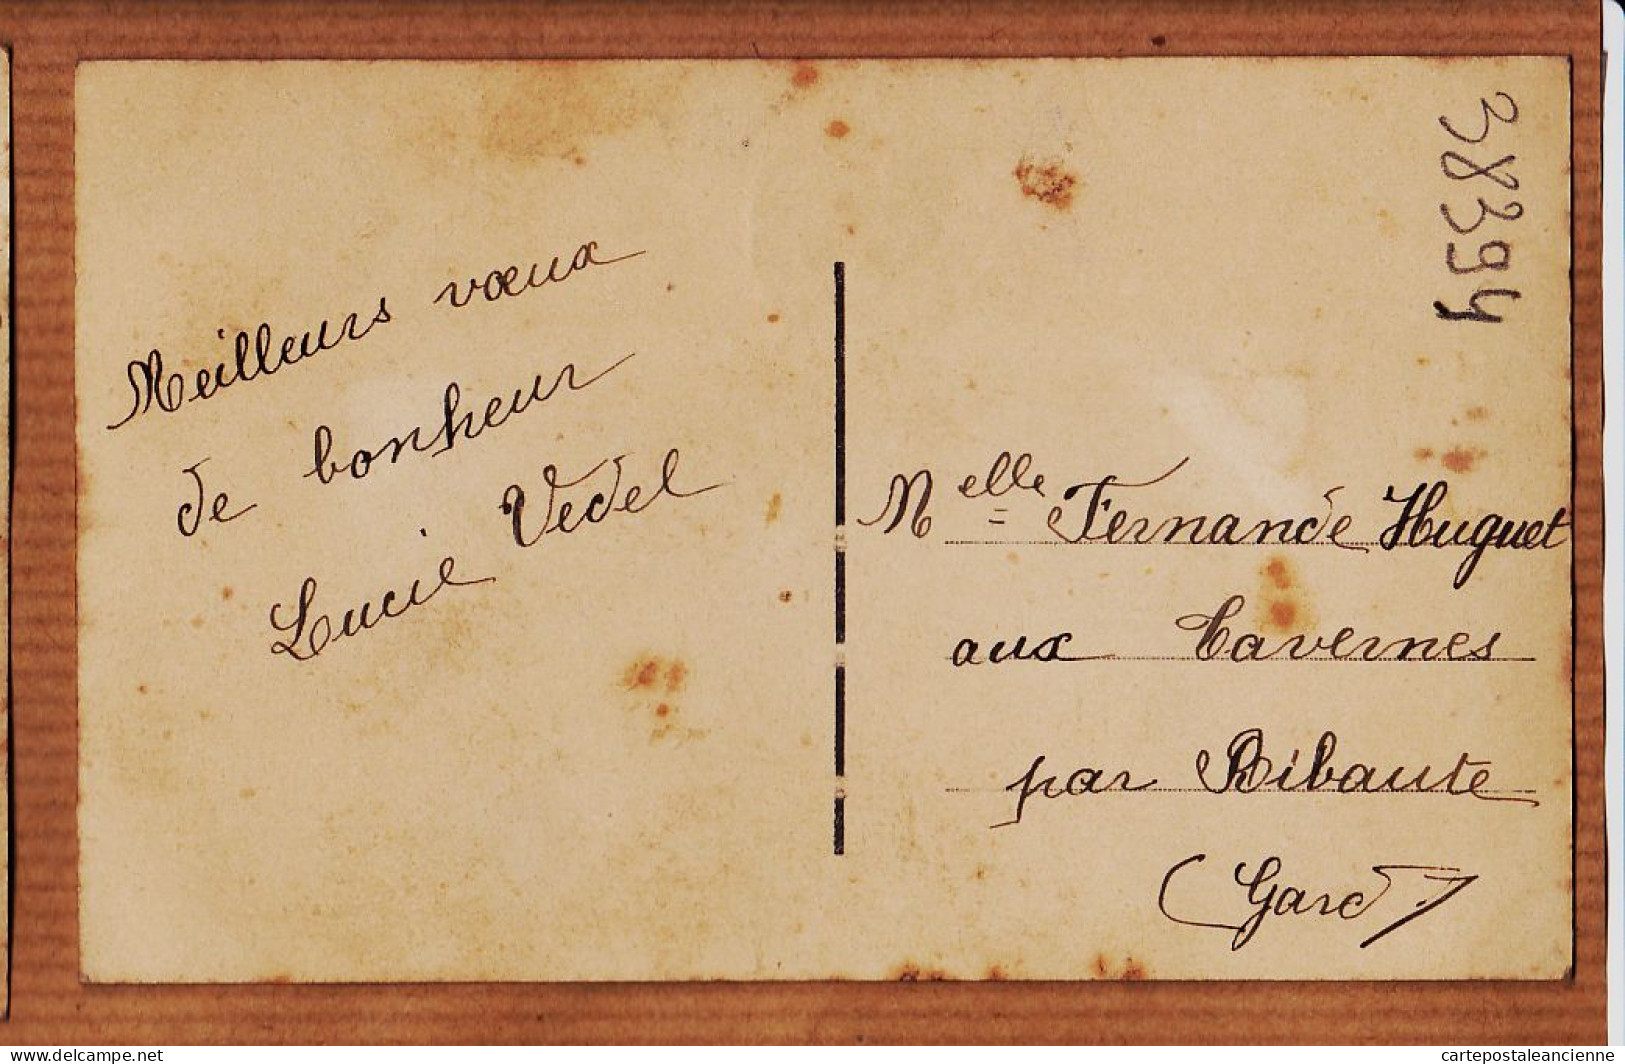 38394
Meilleurs vœux
de bonheur
Lucie Vedel
Melle = Fernande Huguet
aux Tavernes
par Ribaute
(Gard)
www.delcampe.net
cartepostaleancienne